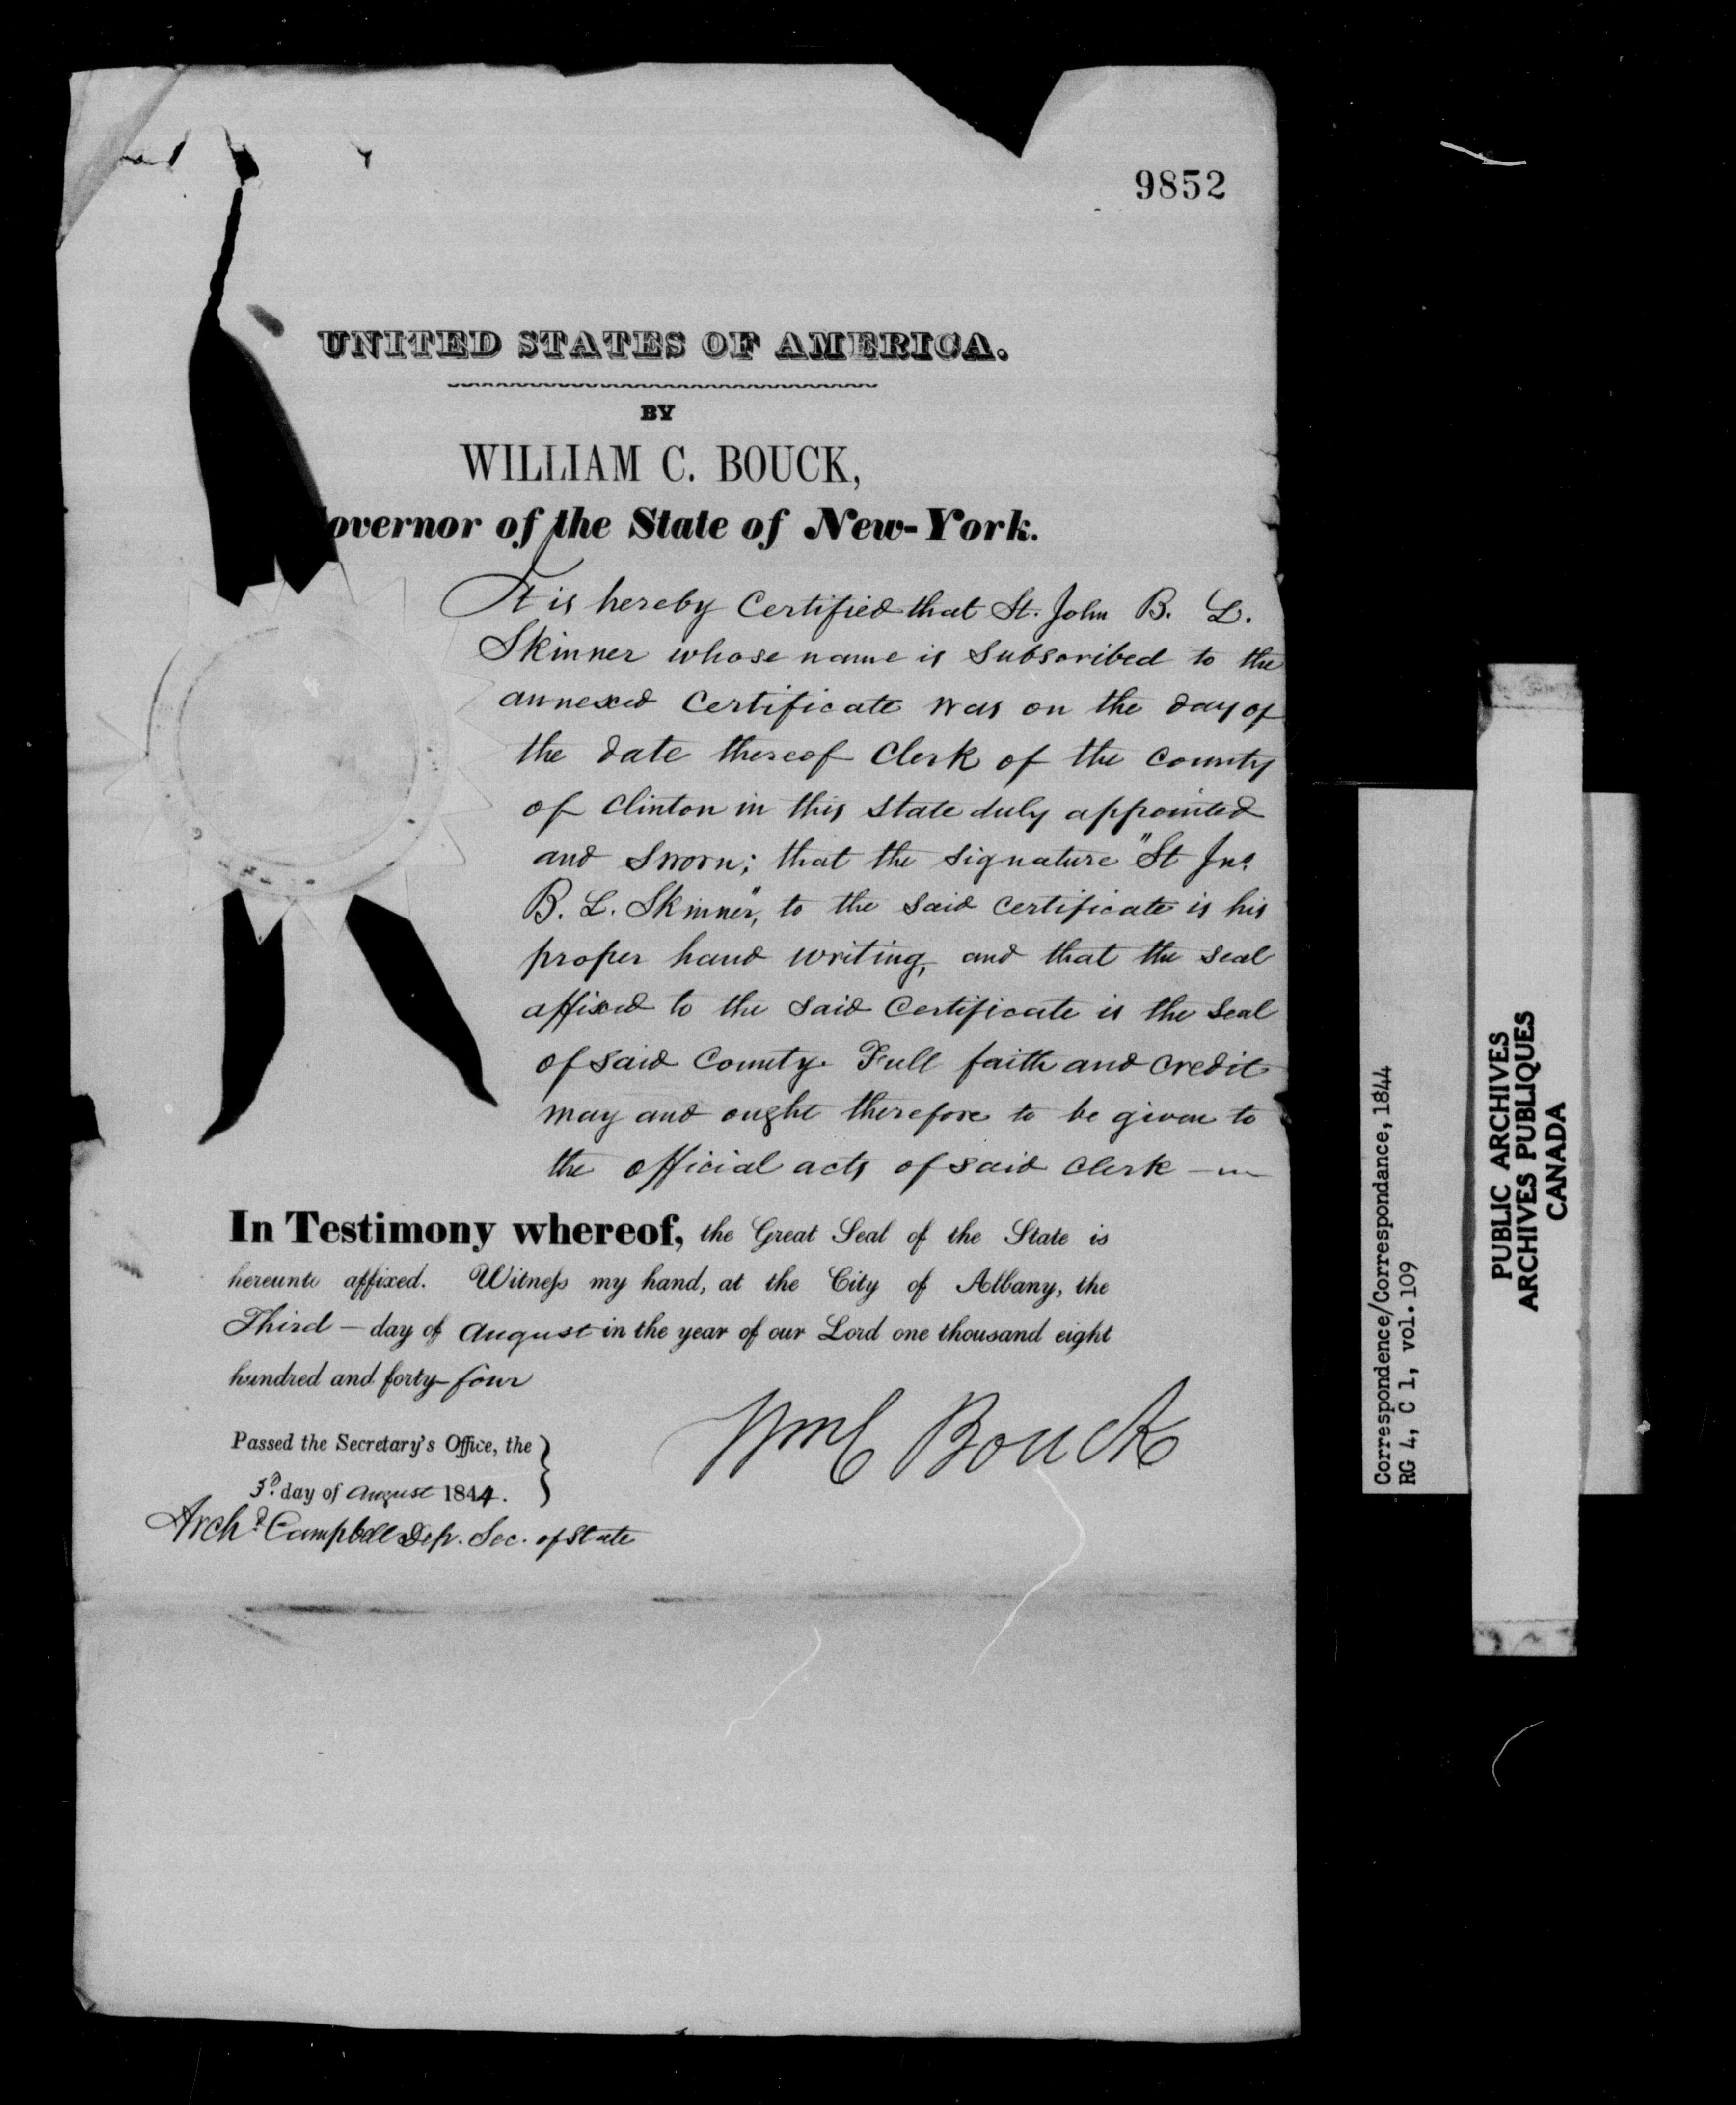 9852
UNITED STATES OF AMERICA.
BY
WILLIAM C. BOUCK,
overnor of the State of New-York.
It is hereby Certified that St. John B. L.
Skinner whose name is subscribed to the
annexed Certificate was on the day of
the date thereof Clerk of the County
of Clinton in this State duly appointed
and sworn; that the signature "St Jno.
B. L. Skinner", to the said Certificate is his
proper hand writing, and that the seal
affixed to the said Certificate is the seal
of said County. Full faith and credit
may and ought therefore to be given to
the official acts of said Clerk —
In Testimony whereof, the Great Seal of the State is
hereunto affixed. Witness my hand, at the City of Albany, the
Third — day of August in the year of our Lord one thousand eight
hundred and forty-four
Wm C Bouck
Passed the Secretary's Office, the
3d. day of August 1844.
Archd. Campbell Dep. Sec. of State
Correspondence/Correspondance, 1844
RG 4, C 1, vol. 109
PUBLIC ARCHIVES
ARCHIVES PUBLIQUES
CANADA